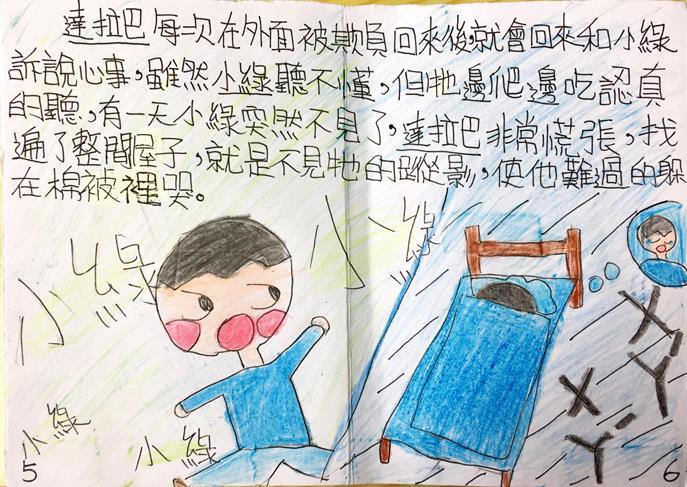 達拉巴每次在外面被欺負回來後,就會回來和小綠
訴說心事,雖然小綠聽不懂,但牠邊爬邊吃認真
的聽,有一天小綠突然不見了,達拉巴非常慌張,找
遍了整間屋子,就是不見牠的蹤影,使他難過的躲
在棉被裡哭。
小綠
小綠
小綠
小綠
ㄨ
ㄚ,
ㄨ
ㄚ,
5
6